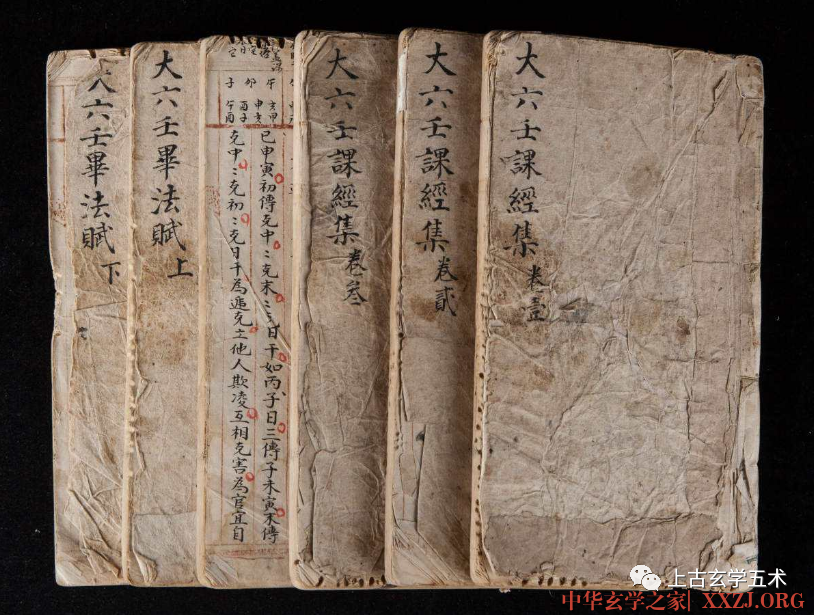 大六壬課經集 卷壹
大六壬課經集 卷貳
大六壬課經集 卷叁
午 亥甲 申亥
卯 酉子
子 午酉
已申寅初傳克中〻克末〻克日干如丙子日三傳子未寅末傳
克中〻克初〻克日干為遞克主他人欺凌互相克害為官宜自
大六壬畢法賦 上
大六壬畢法賦 下
上古玄学五术
中华玄学之家| XXZJ.ORG